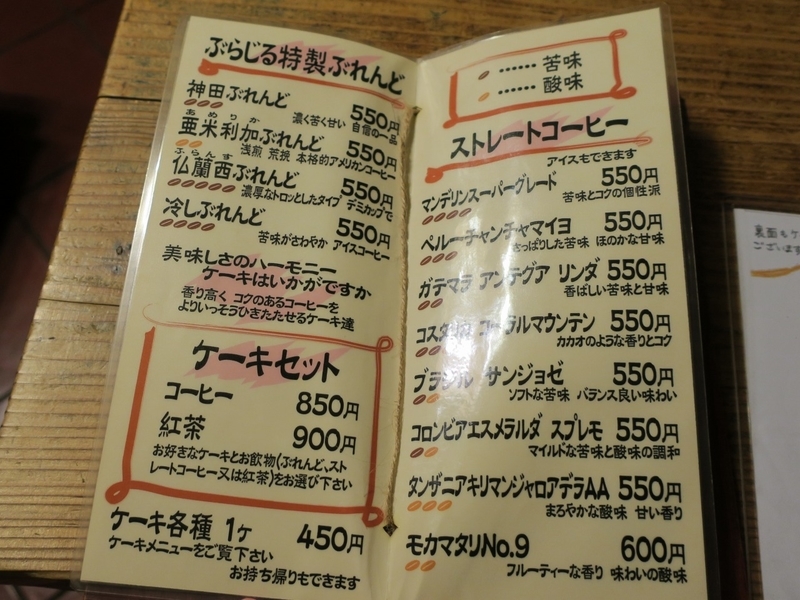 ぶらじる特製ぶれんど
神田ぶれんど 550円
濃く苦く甘い 自信の一品
あめりか
亜米利加ぶれんど 550円
浅煎 荒挽 本格的アメリカンコーヒー
ふらんす
仏蘭西ぶれんど 550円
濃厚なトロッとしたタイプ デミカップで
冷しぶれんど 550円
苦味がさわやか アイスコーヒー
美味しさのハーモニー
ケーキはいかがですか
香り高く コクのあるコーヒーを
よりいっそうひきたたせるケーキ達
ケーキセット
コーヒー 850円
紅茶 900円
お好きなケーキとお飲物(ぶれんど、スト
レートコーヒー又は紅茶)をお選び下さい
ケーキ各種 1ケ 450円
ケーキメニューをご覧下さい
お持ち帰りもできます
……苦味
……酸味
ストレートコーヒー
アイスもできます
マンデリンスーパーグレード 550円
苦味とコクの個性派
ペルーチャンチャマイヨ 550円
さっぱりした苦味 ほのかな甘味
ガテマラ アンテグア リンダ 550円
香ばしい苦味と甘味
コスタリカ コーラルマウンテン 550円
カカオのような香りとコク
ブラジル サンジョゼ 550円
ソフトな苦味 バランス良い味わい
コロンビアエスメラルダ スプレモ 550円
マイルドな苦味と酸味の調和
タンザニアキリマンジャロアデラAA 550円
まろやかな酸味 甘い香り
モカマタリNo.9 600円
フルーティーな香り 味わいの酸味
裏面もケ
ございます